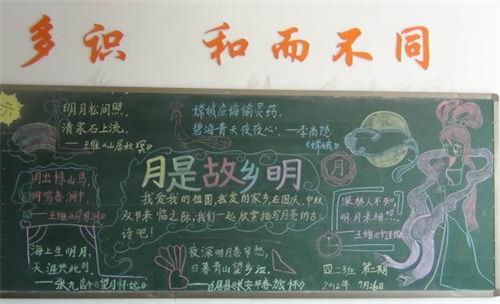 多识 和而不同
明月松间照，
清泉石上流。
——王维《山居秋暝》
嫦娥应悔偷灵药，
碧海青天夜夜心。——李商隐
《嫦娥》
月出惊山鸟，
时鸣春涧中。
——王维《鸟鸣涧》
月是故乡明
月
我爱我的祖国，我爱的家乡，在国庆、中秋
双节来临之际，我们一起欣赏描写月亮的古
诗吧！
深林人不知，
明月来相照。
——王维《竹里馆》
海上生明月，
天涯共此时。
——张九龄《望月怀远》
夜深明月卷帘愁，
日暮青山望乡泣。
——白居易《长安早春旅怀》
四二班 第二期
2012年9月26日